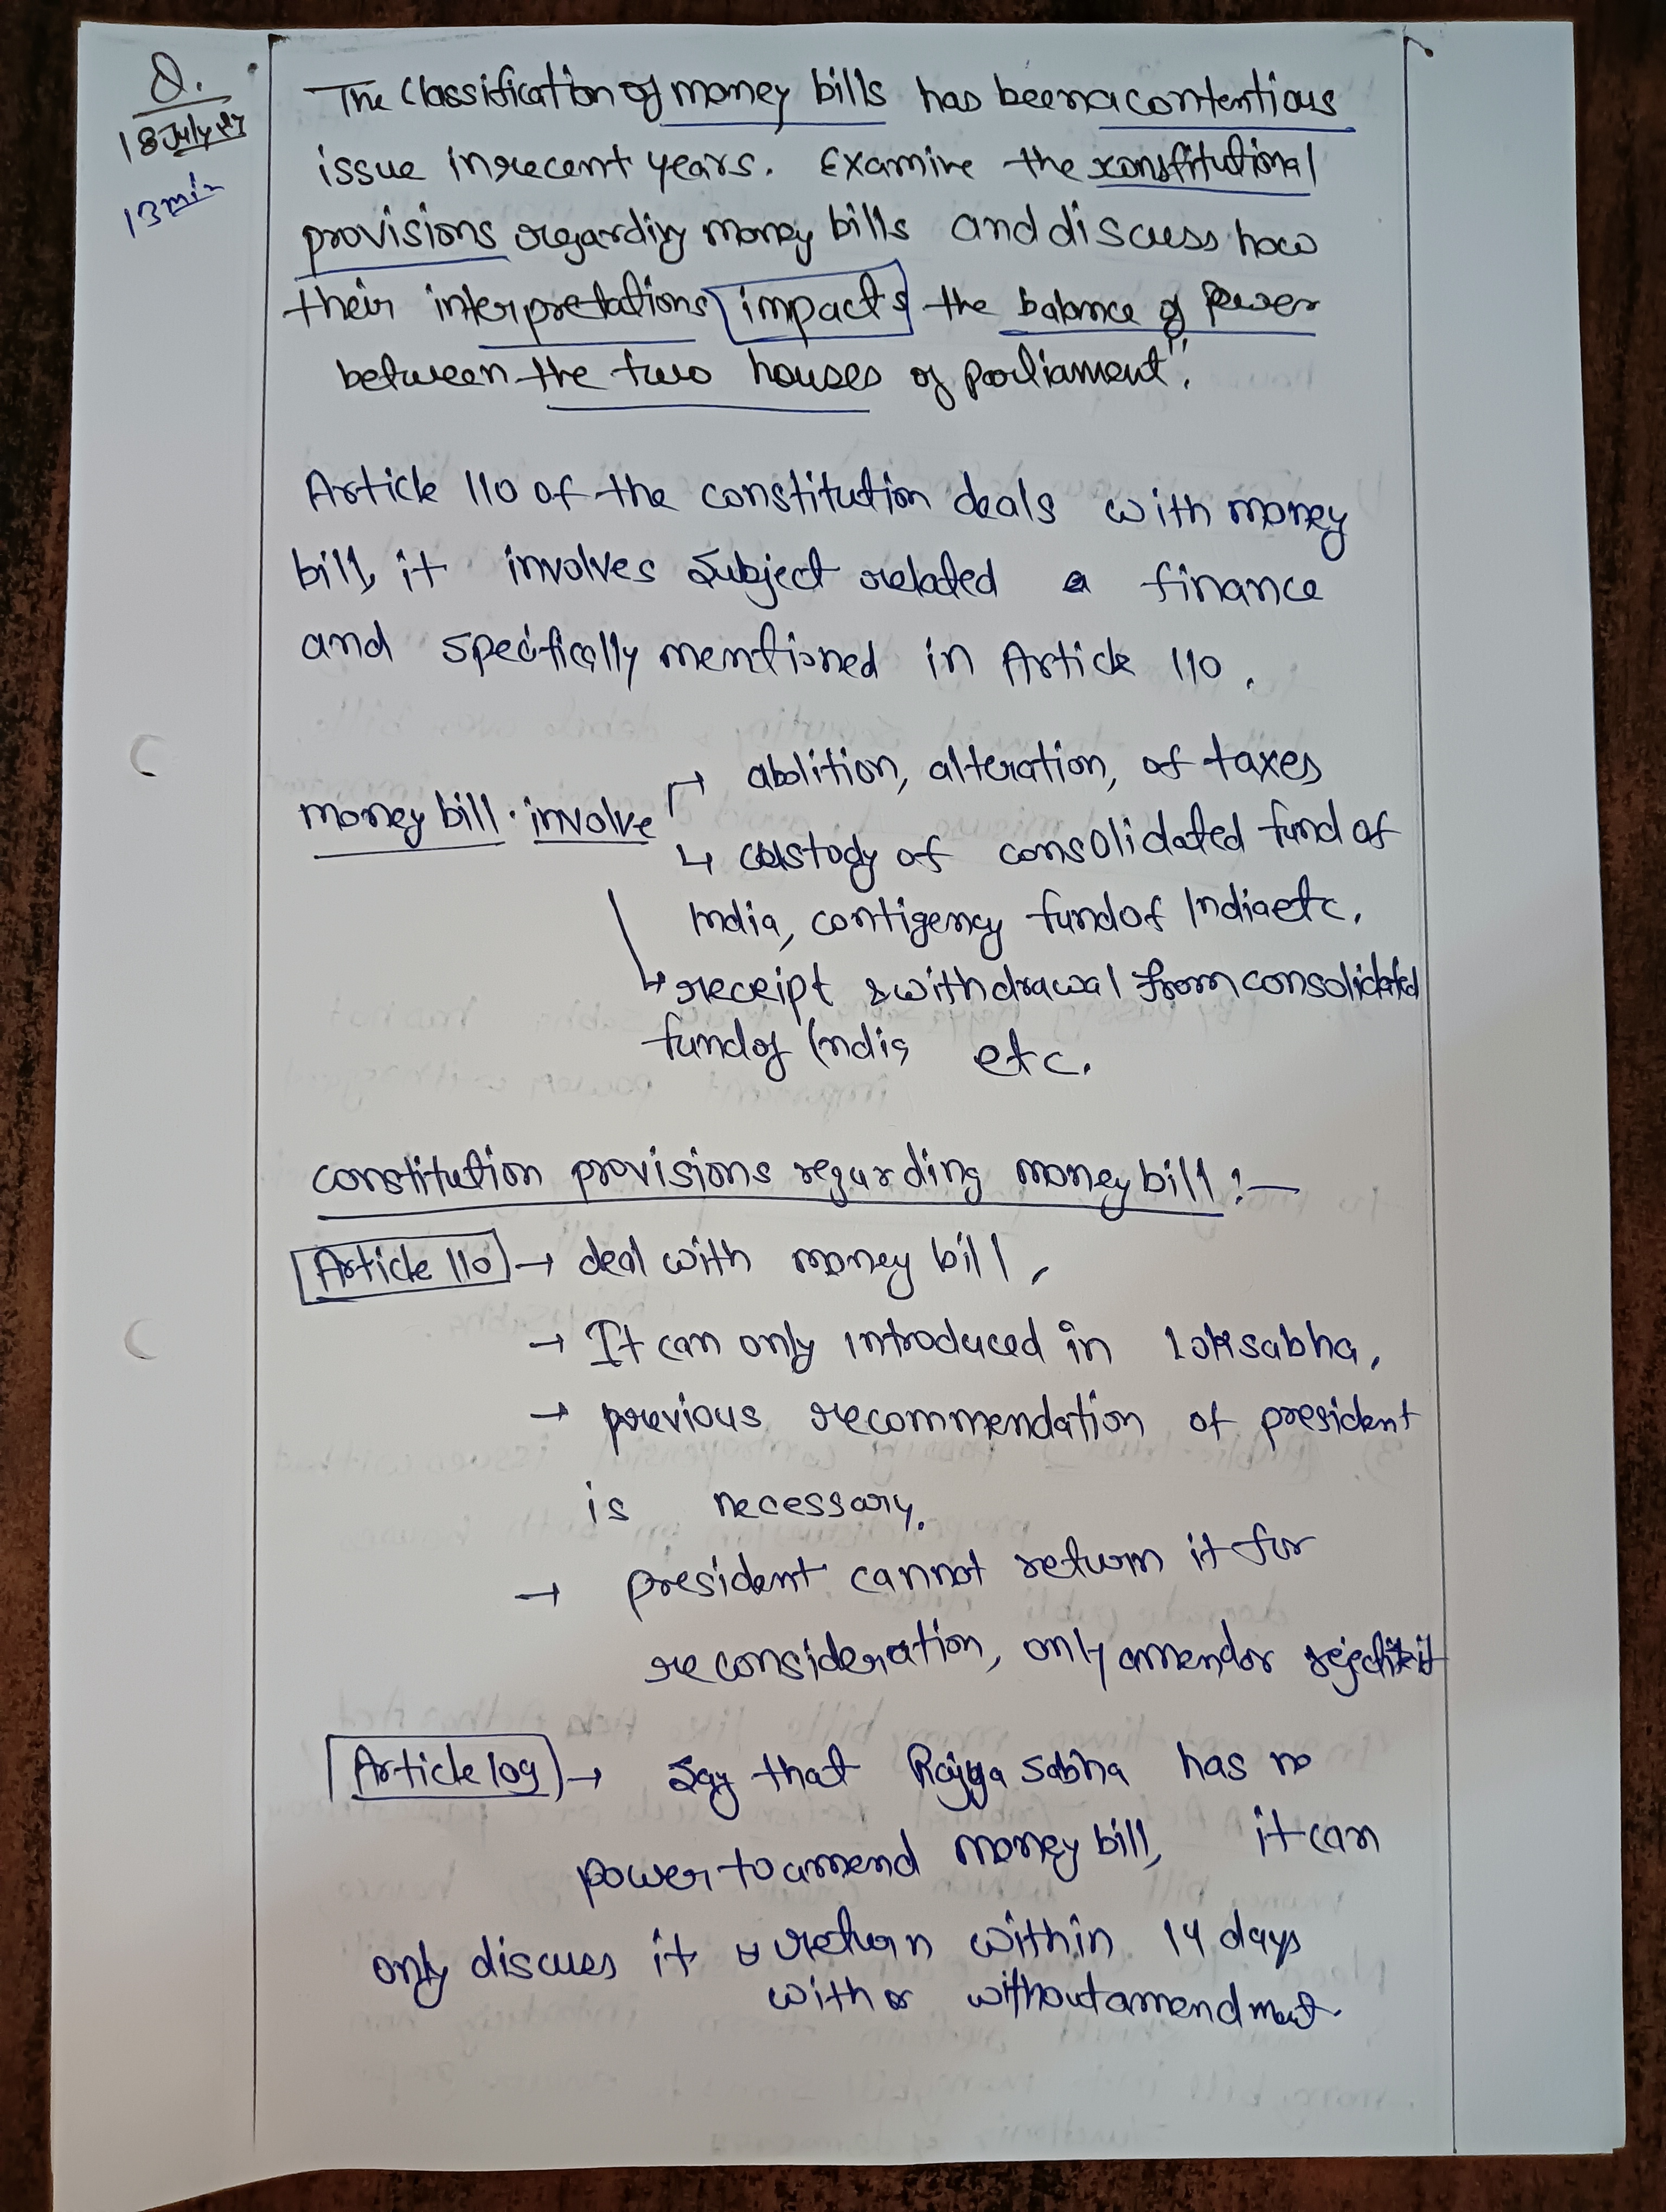 Q.
18 July
13 min
The Classification of money bills has been a contentious
issue in recent years. Examine the constitutional
provisions regarding money bills and discuss how
their interpretations impacts the balance of power
between the two houses of parliament".
Article 110 of the constitution deals with money
bill, it involves subject related a finance
and specifically mentioned in Article 110.
→ abolition, alteration, of taxes
money bill involve
↳ custody of consolidated fund of
India, contigency fund of India etc.
↳ receipt & withdrawal from consolidated
fund of India etc.
constitution provisions regarding money bill :-
Article 110 → deal with money bill,
→ It can only introduced in loksabha,
→ previous recommendation of president
is necessary.
→ president cannot return it for
reconsideration, only amend or reject it
Article 109 → Say that Rajya sabha has no
power to amend money bill, it can
only discuss it & return within 14 days
with or without amendment.